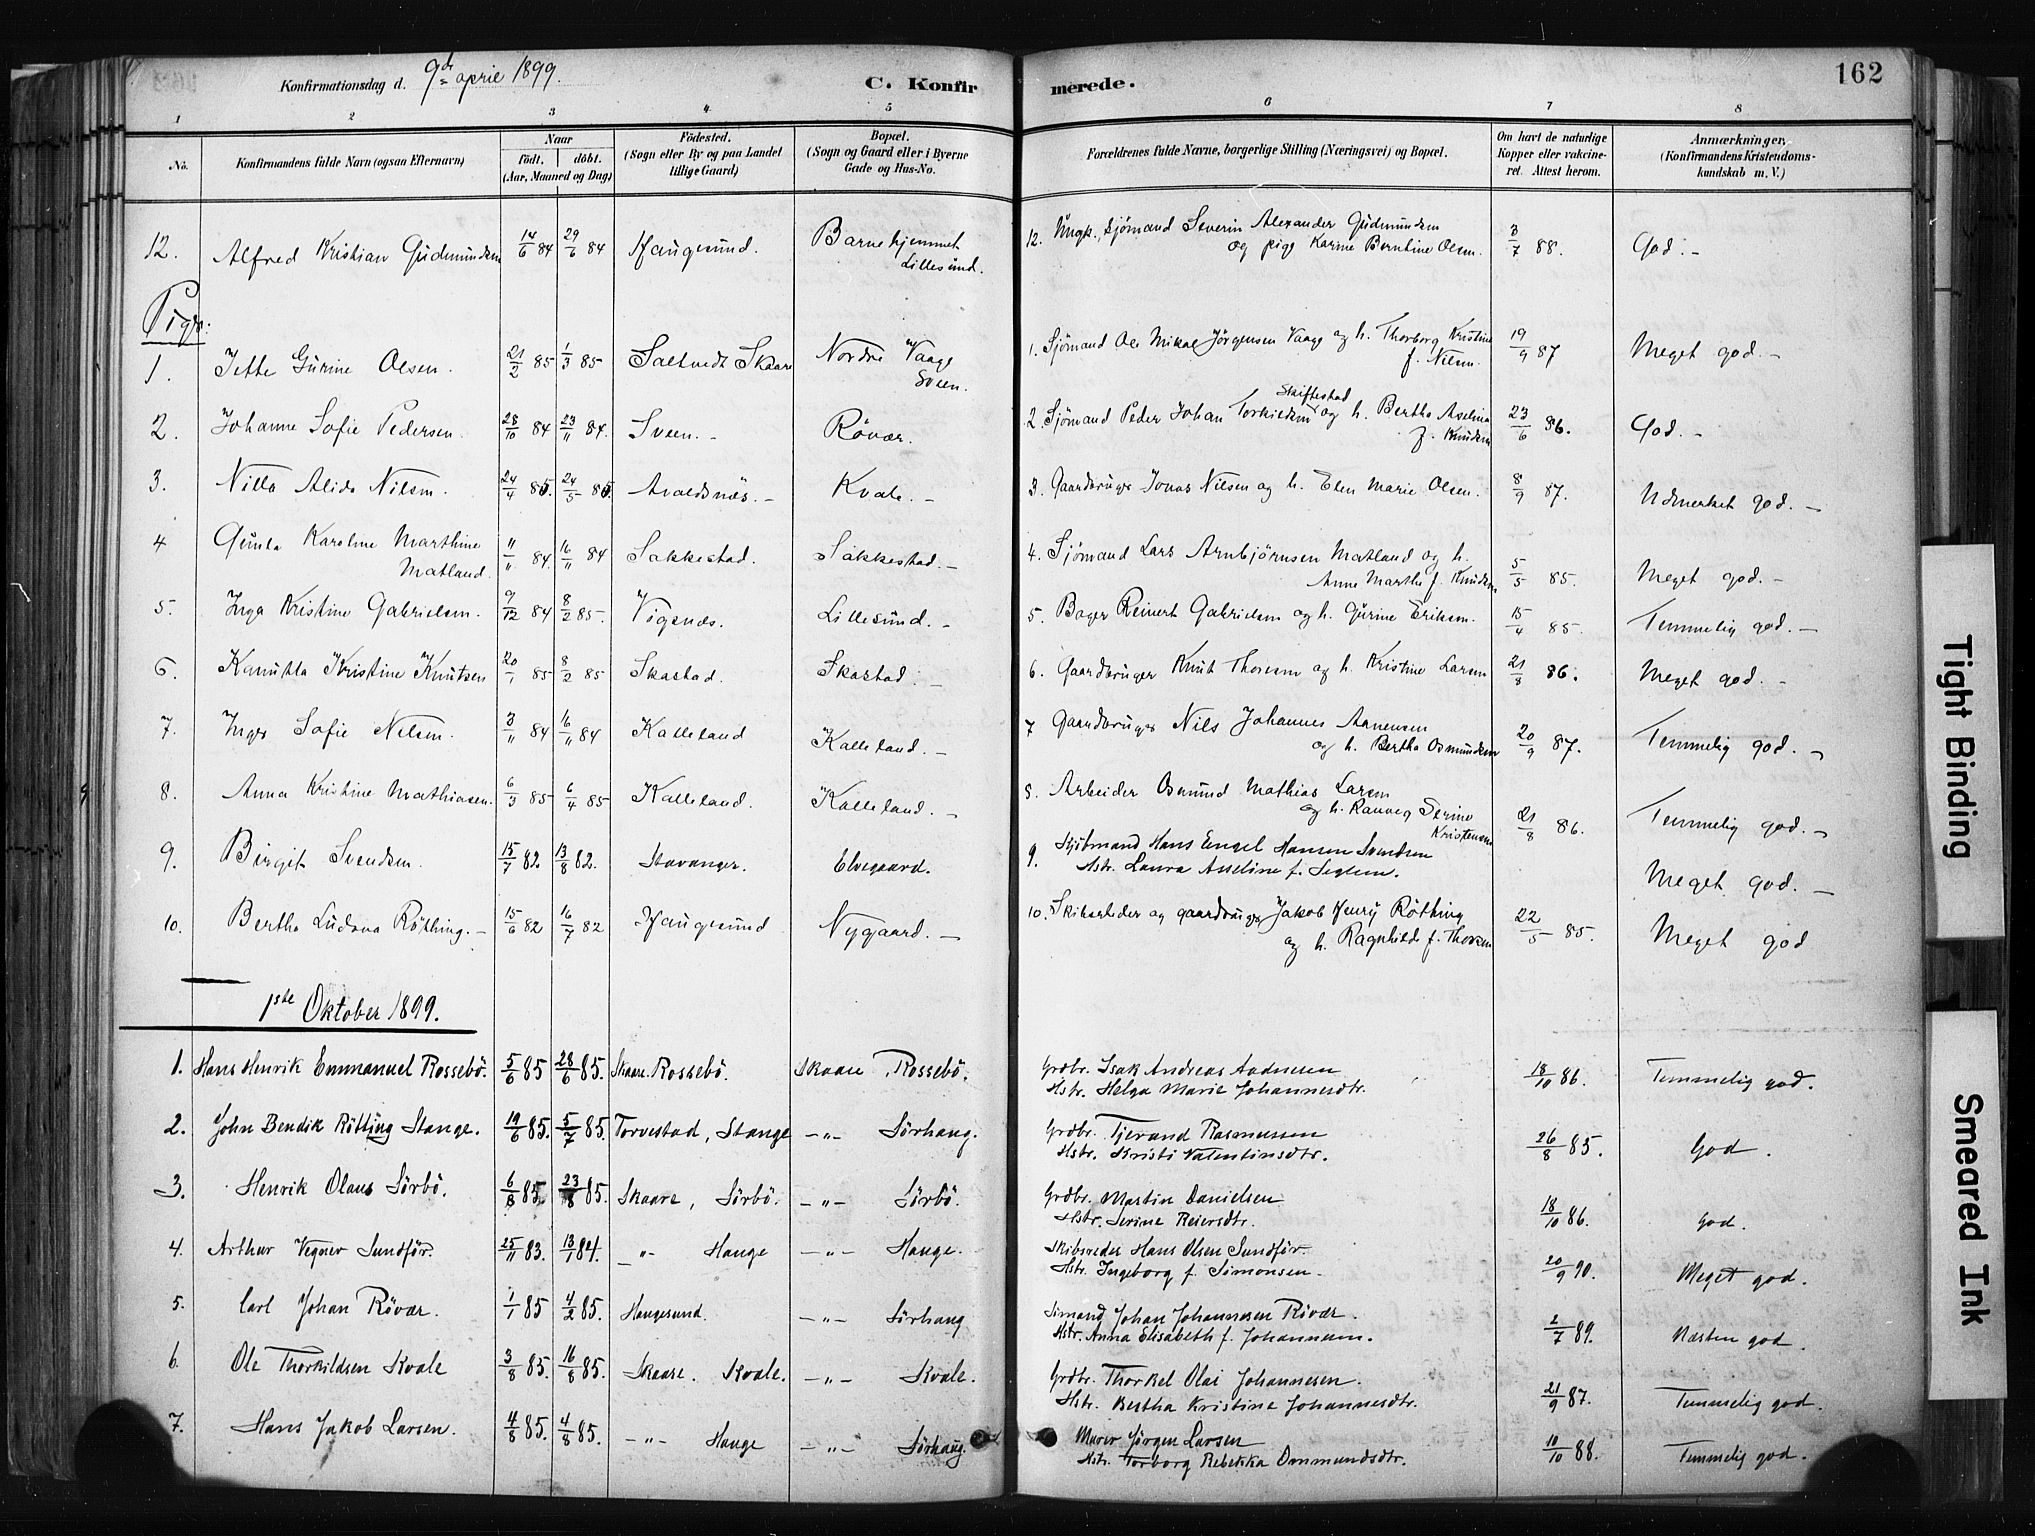 Konfirmationsdag d. 9de april 1899.
C. Konfirmerede.
162
1 2 3 4 5 6 7 8
No. Konfirmandens fulde Navn (ogsaa Efternavn) Naar födt. döbt. (Aar, Maaned og Dag) Födested. (Sogn eller By og paa Landet tillige Gaard) Bopæl. (Sogn og Gaard eller i Byerne Gade og Hus-No. Forældrenes fulde Navne, borgerlige Stilling (Næringsvei) og Bopæl. Om havt de naturlige Kopper eller vakcineret. Attest herom. Anmærkninger. (Konfirmandens Kristendomskundskab m. V.)
12. Alfred Kristian Gudmundsen 14/6 84 29/6 84 Haugesund. Barnehjemmet Lillesund. 12. Ungk., Sjömand Severin Alexander Gudmundsen og pige Karine Berntine Olsen. 3/7 88. God. -
Piger:
1. Jette Gurine Olsen. 21/2 85 1/3 85 Saltvedt Skaare Nordre Vaage Sveen. 1. Sjömand Ole Mikal Jörgensen Vaage og h. Thorborg Kristine f. Nilsen. 19/9 87 Meget god. -
2. Johanne Sofie Pedersen. 28/10 84 23/11 84. Sveen. - Rövær. 2. Sjömand Peder Johan Torkildsen Skiftestad og h. Bertha Aselina f. Knudsen 23/6 86. God. -
3. Nilla Alida Nilsen. 24/4 85. 24/5 85. Avaldsnæs. - Kvale. - 3. Gaardbruger Jonas Nilsen og h. Elen Marie Olsen. 8/9 87. Udmerket god. -
4 Gunla Karoline Marthine Matland. 11/11 84. 16/11 84 Sakkestad. Sakkestad. - 4. Sjömand Lars Arnbjörnsen Matland og h. Anne Marthe f. Knudsen 5/5 85. Meget god. -
5. Inga Kristine Gabrielsen. 9/12 84 8/2 85. Vigsnæs. Lillesund. - 5. Bager Reinert Gabrielsen og h. Gurine Eriksen. 15/4 85. Temmelig god. -
6. Kanutta Kristine Knutsen 20/1 85 8/2 85 Skastad. Skastad. - 6. Gaardbruger Knut Thoresen og h. Kristine Larsen 21/8 86. Meget god. -
7. Inger Sofie Nilsen. 3/11 84 16/11 84 Kalleland Kalleland. - 7 Gaardbruger Nils Johannes Aanensen og h. Bertha Osmundsen 20/9 87. Temmelig god. -
8. Anna Kristine Mathiasen. 6/3 85 6/4 85 Kalleland. Kalleland. - 8. Arbeider Osmund Mathias Larsen og h. Ranveg Serine Kristensen 21/8 86. Temmelig god. -
9. Birgit Svendsen. 15/7 82 13/8 82. Stavanger. Elvegaard. 9. Kjöbmand Hans Engel Hansen Svendsen Hstr. Laura Asseline f. Seglem. Meget god. -
10. Bertha Ludova Röthing. - 15/6 82 16/7 82 Haugesund Nygaard. - 10. Skibsreder og gaardbruger Jakob Henry Röthing og h. Ragnhilde f. Thorsen 22/5 85. Meget god
1ste Oktober 1899.
1. Hans Henrik Emmanuel Rossebö. 5/6 85 28/6 85. Skaare. Rossebö. Skaare, Rossebö. Grdbr. Isak Andreas Aadnesen Hstr. Helga Marie Johannesdtr. 18/10 86. Temmelig god.
2. John Bendik Rötting Stange. 19/6 85. 5/7 85. Torvestad, Stange -"- Sörhaug. Grdbr. Tjerand Rasmussen Hstr. Kristi Valentinsdtr. 26/8 85. God.
3. Henrik Olaus Sörbö. 6/8 85. 23/8 85. Skaare, Sörbö. -"- Sörbö. Grdbr. Martin Danielsen Hstr. Serine Reiersdtr. 18/10 86. God.
4. Arthur Vegner Sundför. 25/11 83. 13/1 84. -"- Hauge -"- Hauge. Skibsreder Hans Olsen Sundför. Hstr. Ingeborg f. Simonsen. 20/9 90. Meget god.
5. Carl Johan Rövær. 1/1 85 4/2 85. Haugesund. -"- Sörhaug Sömand Johan Johannesen Rövær. Hstr. Anna Elisabeth f. Johannesen. 2/7 89. Næsten god.
6. Ole Thorkildsen Kvale 3/8 85. 16/8 85. Skaare. Kvale. -"- Kvale. Grdbr. Thorkel Olai Johannesen. Hstr. Bertha Kristine Johannesdtr. 21/9 87. Temmelig god.
7. Hans Jakob Larsen. 4/8 85. 4/8 85. -"- Hauge -"- Sörhaug. Murer Jörgen Larsen Hstr. Torborg Rebekka Ommundsdtr. 10/10 88. Temmelig god.
Tight Binding
Smeared Ink